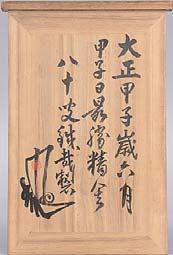 大正甲子歳六月
甲子日最勝精舎
八十叟鉄哉製